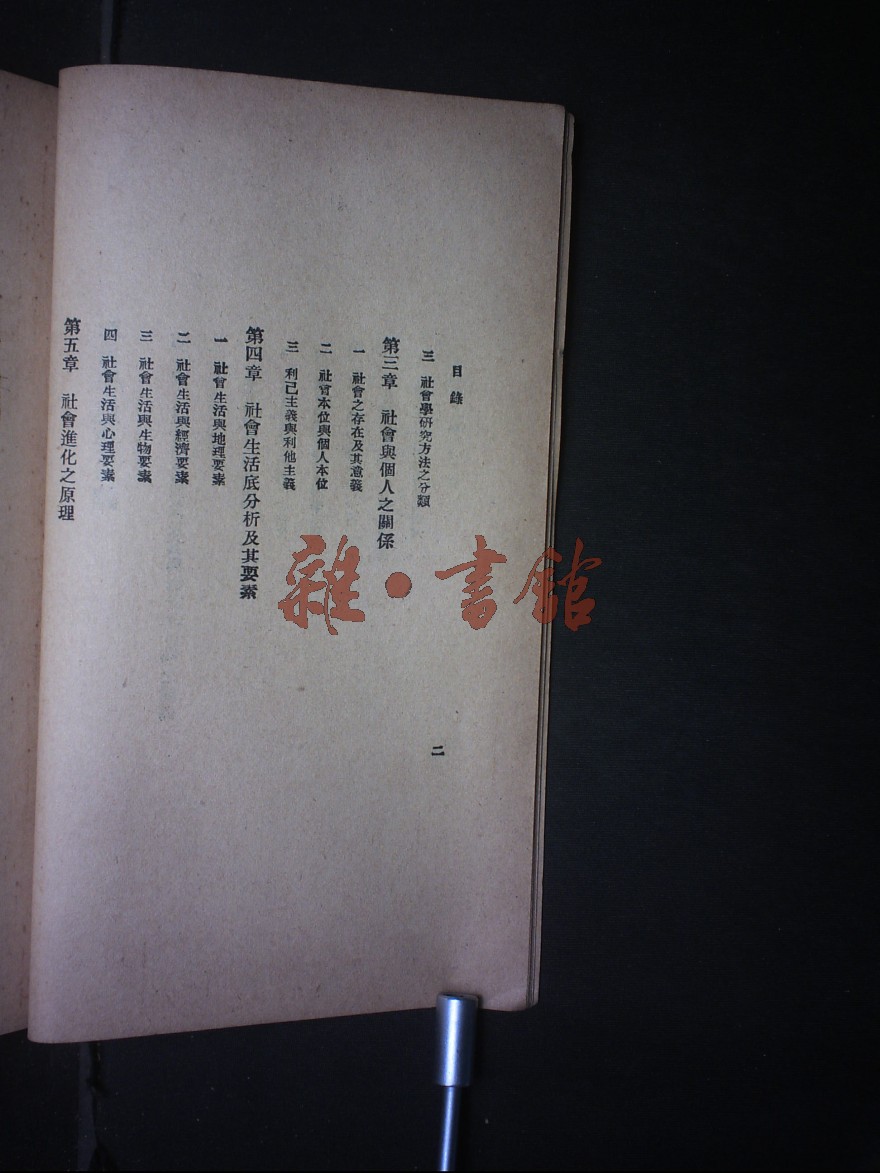 目錄
二
三 社會學研究方法之分類
第三章 社會與個人之關係
一 社會之存在及其意義
二 社會本位與個人本位
三 利己主義與利他主義
第四章 社會生活底分析及其要素
一 社會生活與地理要素
二 社會生活與經濟要素
三 社會生活與生物要素
四 社會生活與心理要素
第五章 社會進化之原理
雜·書館